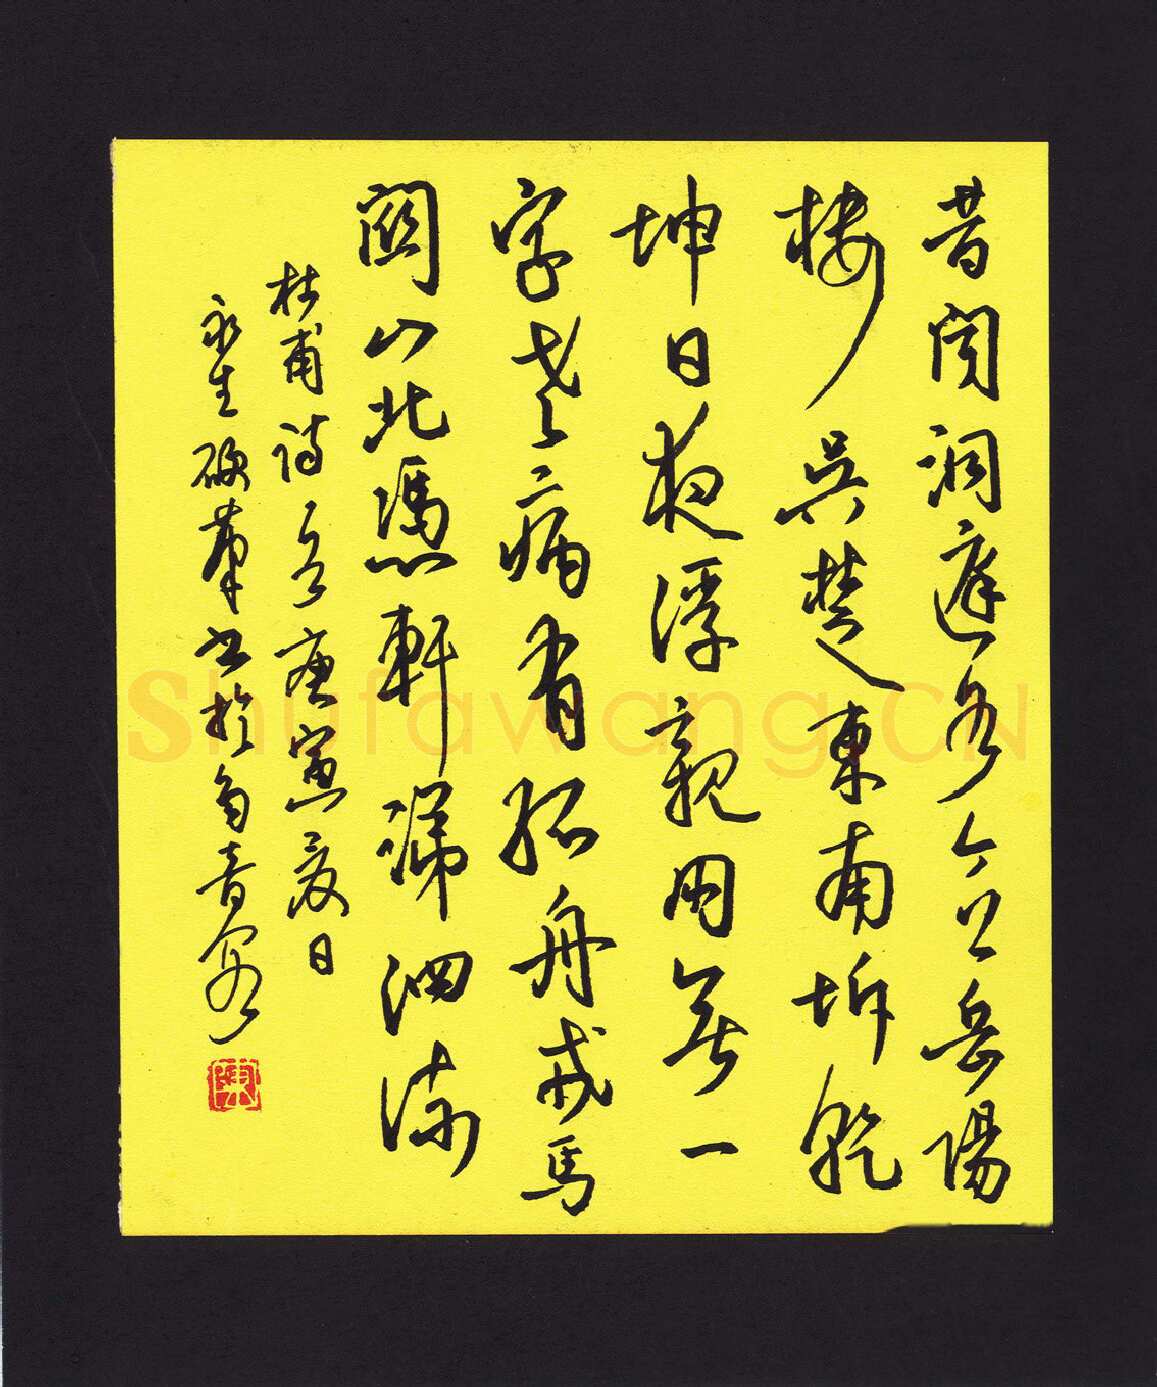 昔聞洞庭水今上岳陽
楼吳楚東南坼乾
坤日夜浮親朋無一
字老病有孤舟戎馬
關山北憑軒涕泗流
杜甫詩 庚寅夏日
永生硬筆書於 音
Shufawang.CN